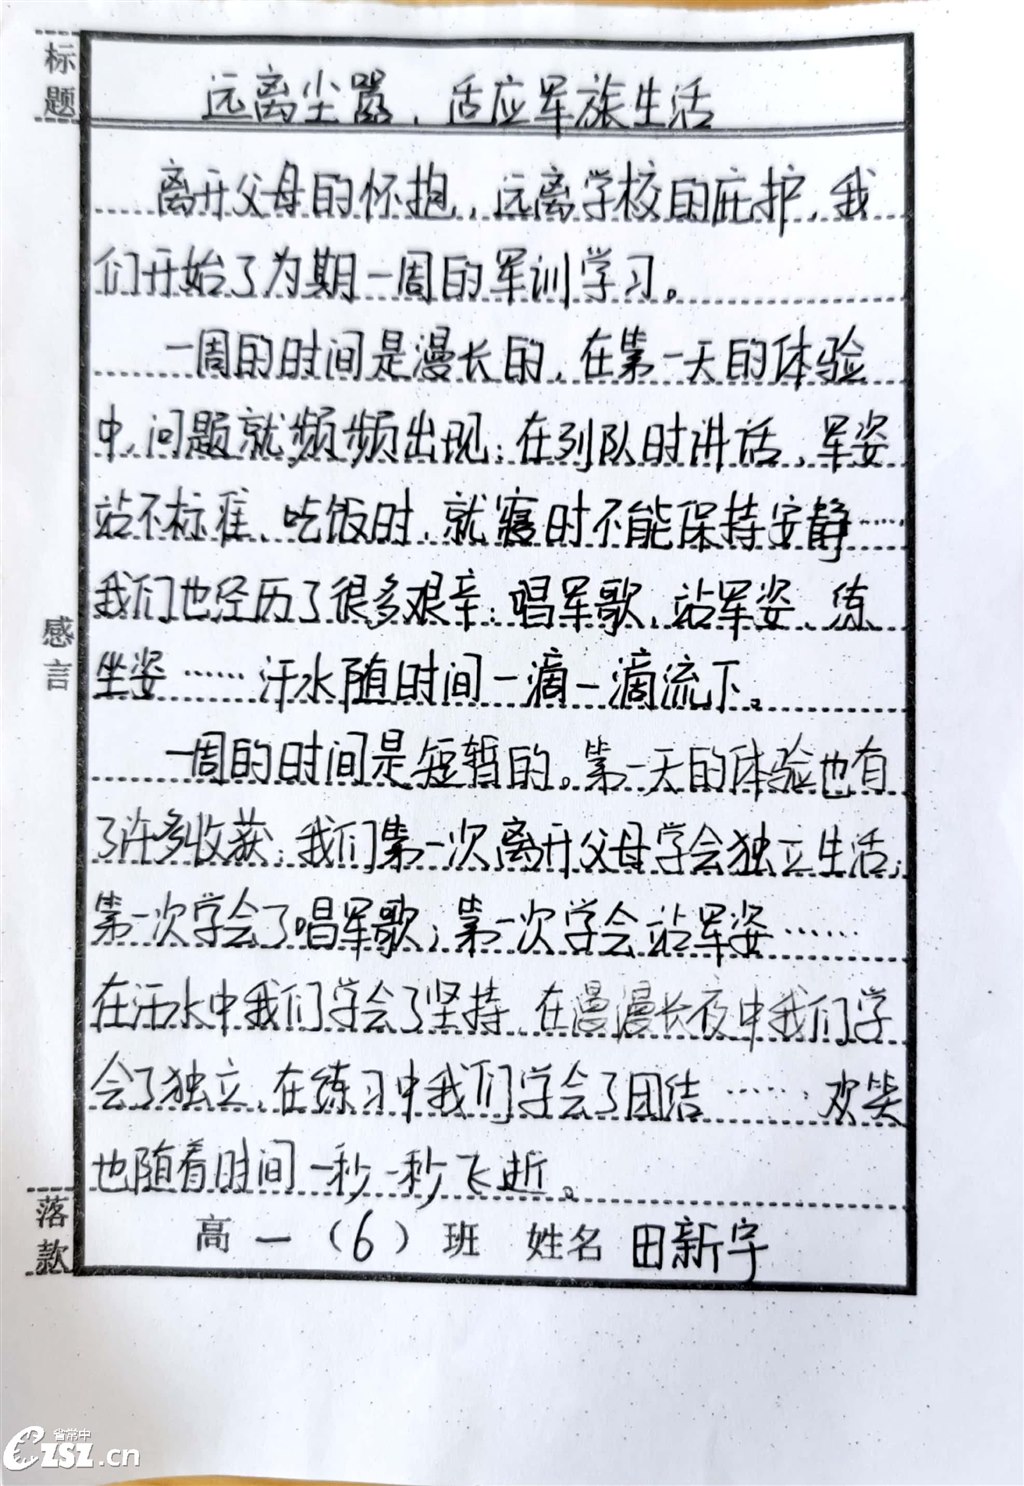 标题
远离尘嚣，适应军旅生活
离开父母的怀抱，远离学校的庇护，我
们开始了为期一周的军训学习。
一周的时间是漫长的，在第一天的体验
中，问题就频频出现：在列队时讲话，军姿
站不标准、吃饭时、就寝时不能保持安静……
感言
我们也经历了很多艰辛：唱军歌、站军姿、练
坐姿……汗水随时间一滴一滴流下。
一周的时间是短暂的。第一天的体验也有
了许多收获：我们第一次离开父母学会独立生活；
第一次学会了唱军歌；第一次学会站军姿……
在汗水中我们学会了坚持，在漫漫长夜中我们学
会了独立，在练习中我们学会了团结……欢笑
也随着时间一秒一秒飞逝。
落款
高一（6）班 姓名 田新宇
省常中
CZSZ.cn